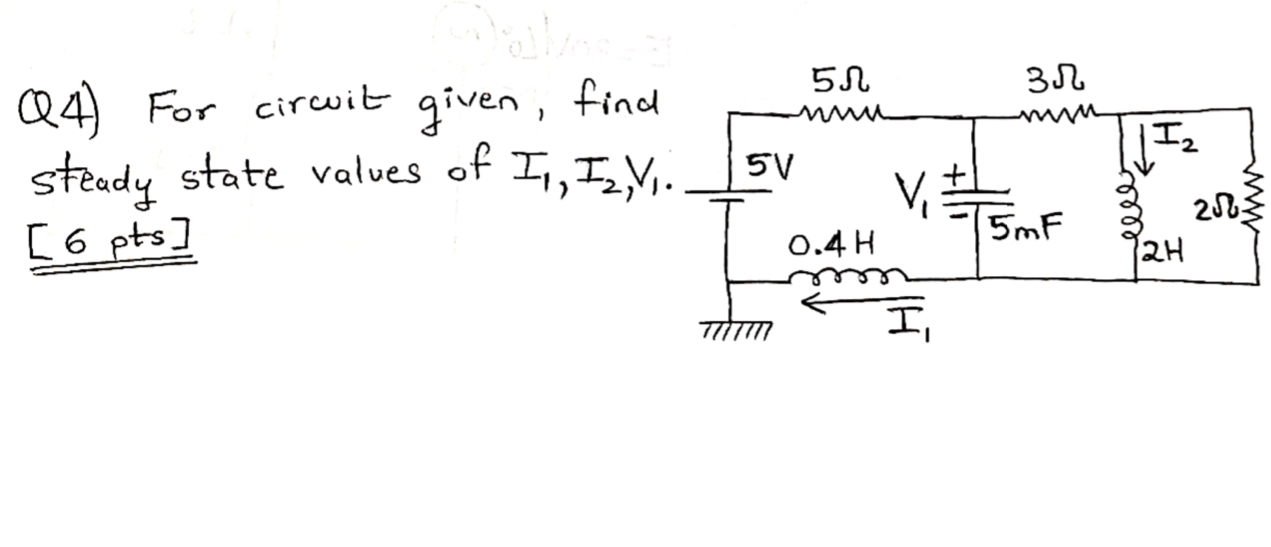 Q4) For circuit given, find
steady state values of I₁, I₂, V₁.
[6 pts]
5Ω
3Ω
5V
V₁
+
-
5mF
I₂
2Ω
2H
0.4H
I₁